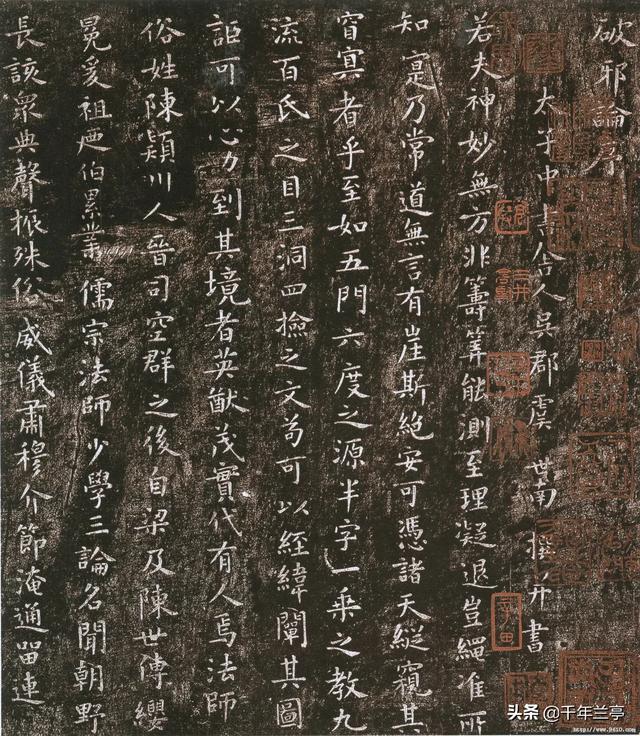 破邪論序
太子中書舍人吳郡虞世南撰并書
若夫神妙無方非籌筭能測至理凝退豈繩准所
知寔乃常道無言有崖斯絕安可憑諸天縱窺其
窅冥者乎至如五門六度之源半字一乘之教九
流百氏之目三洞四撿之文苟可以經緯闡其圖
詎可以心力到其境者英猷茂實代有人焉法師
俗姓陳潁川人晉司空群之後自梁及陳世傳纓
冕爰祖伯累業儒宗法師少學三論名聞朝野
長該眾典聲振殊俗威儀肅穆介節淹通留連
头条 @千年兰亭
www.9610.com